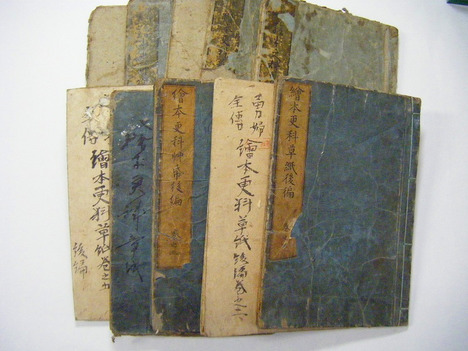 繪本更科草紙後編
勇婦
全傳
繪本更科草紙後編巻之
繪本更科草帋後編
繪本更科草紙
全傳
繪本更科草紙巻之五
後編